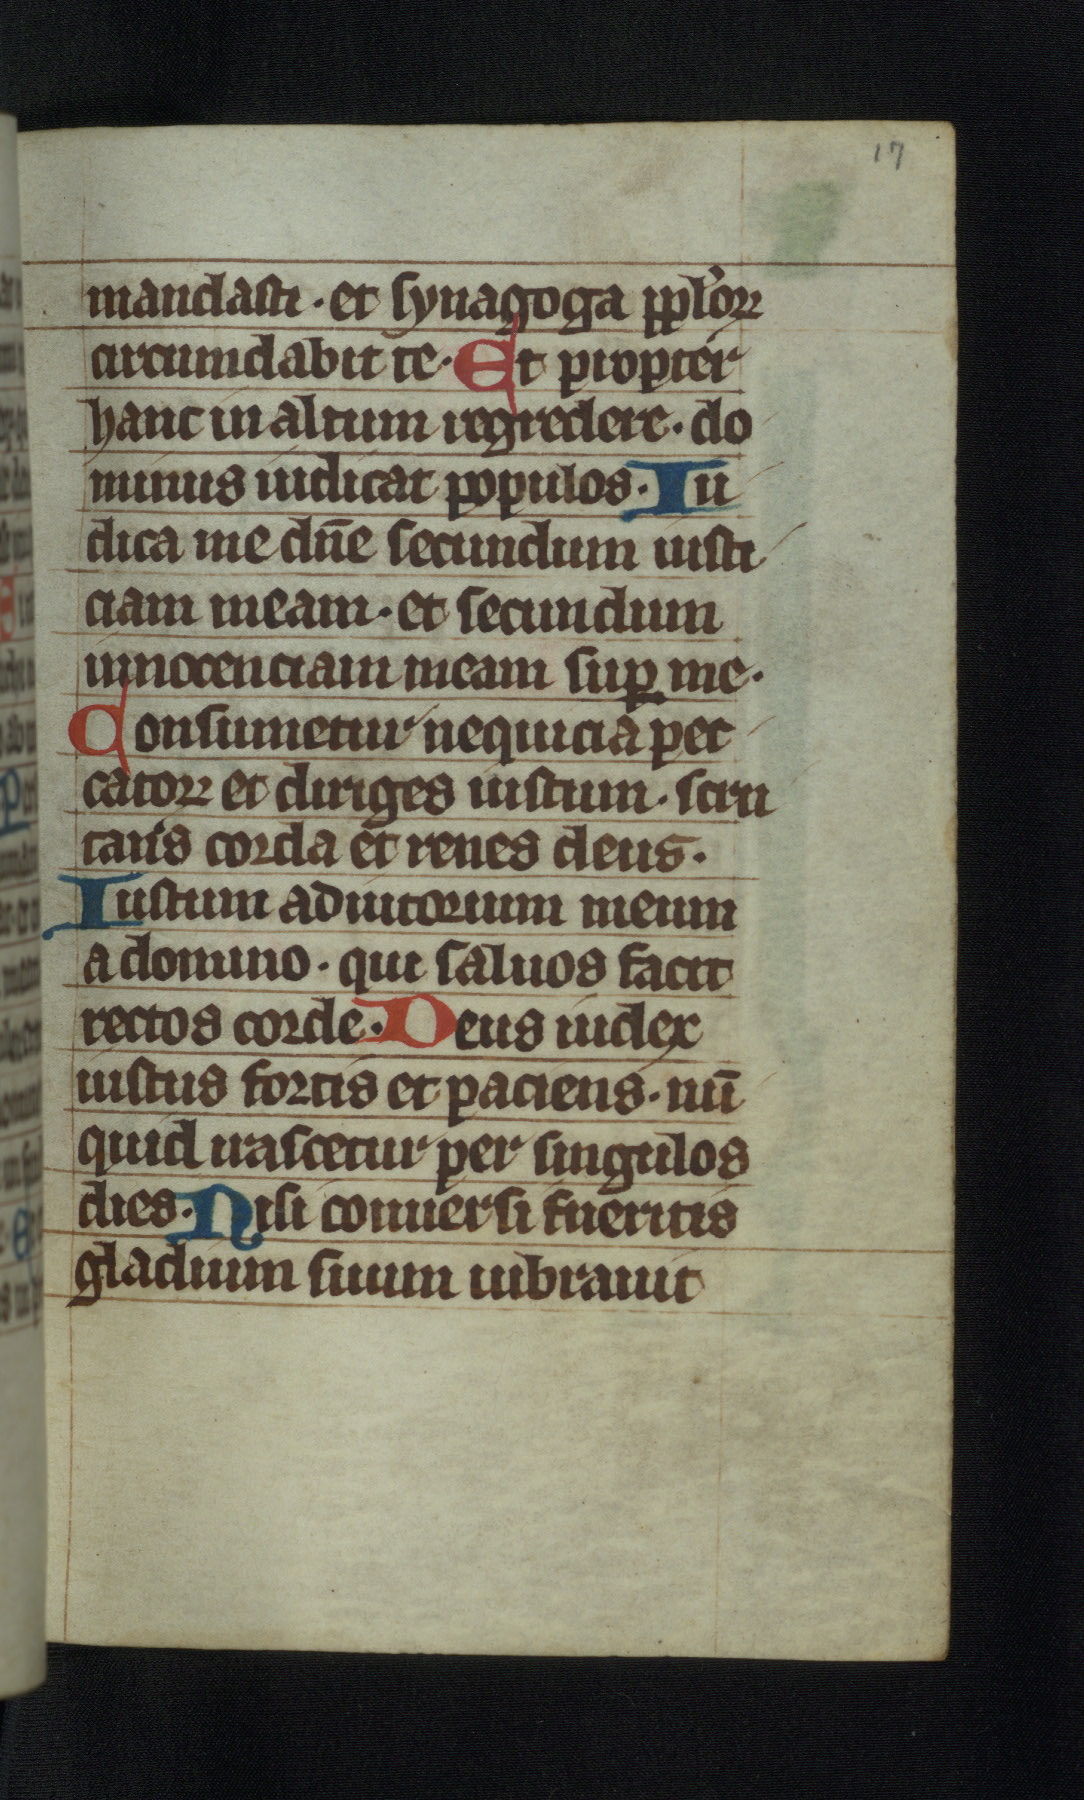 17
mandasti · et synagoga pplorꝝ
circumdabit te · Et propter
hanc in altum regredere · do
minus iudicat populos · Iu
dica me dn̄e secundum iusti
ciam meam · et secundum
innocenciam meam suꝑ me ·
Consumetur nequicia pec
catorꝝ et diriges iustum · scru
tans corda et renes deus ·
Iustum adiutorium meum
a domino · qui saluos facit
rectos corde · Deus iudex
iustus fortis et paciens · nū
quid irascetur per singulos
dies · Nisi conuersi fueritis
gladium suum uibrauit